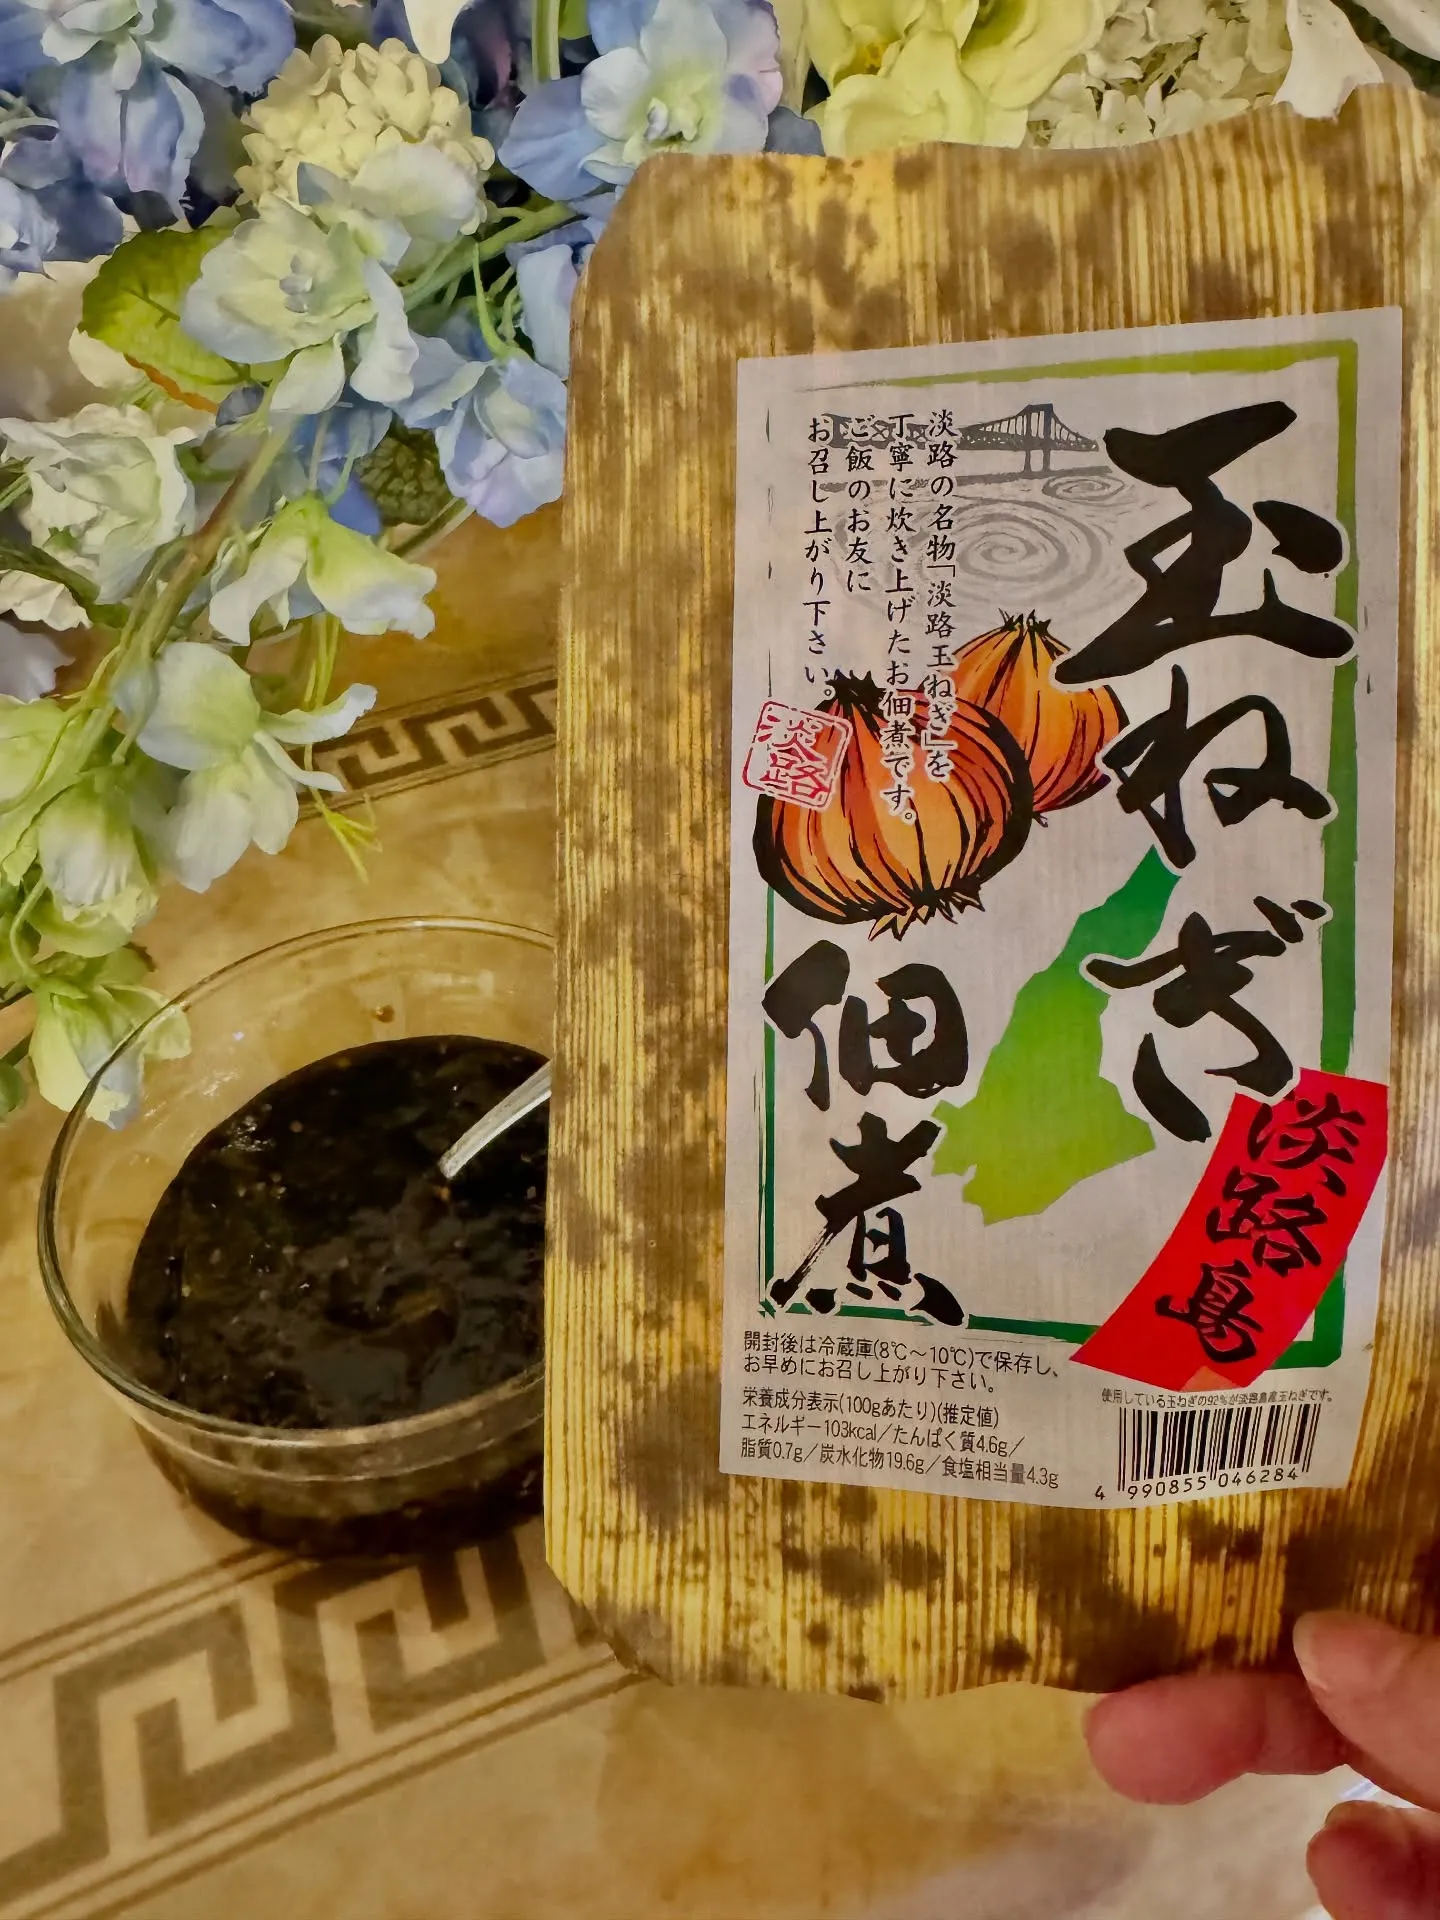 玉ねぎ
佃煮
淡路島
淡路の名物「淡路玉ねぎ」を
丁寧に炊き上げたお佃煮です。
ご飯のお友に
お召し上がり下さい。
淡路
開封後は冷蔵庫(8℃～10℃)で保存し、
お早めにお召し上がり下さい。
栄養成分表示(100gあたり)(推定値)
エネルギー103kcal／たんぱく質4.6g／
脂質0.7g／炭水化物19.6g／食塩相当量4.3g
使用している玉ねぎの92%が淡路島産玉ねぎです。
4 990855 046284